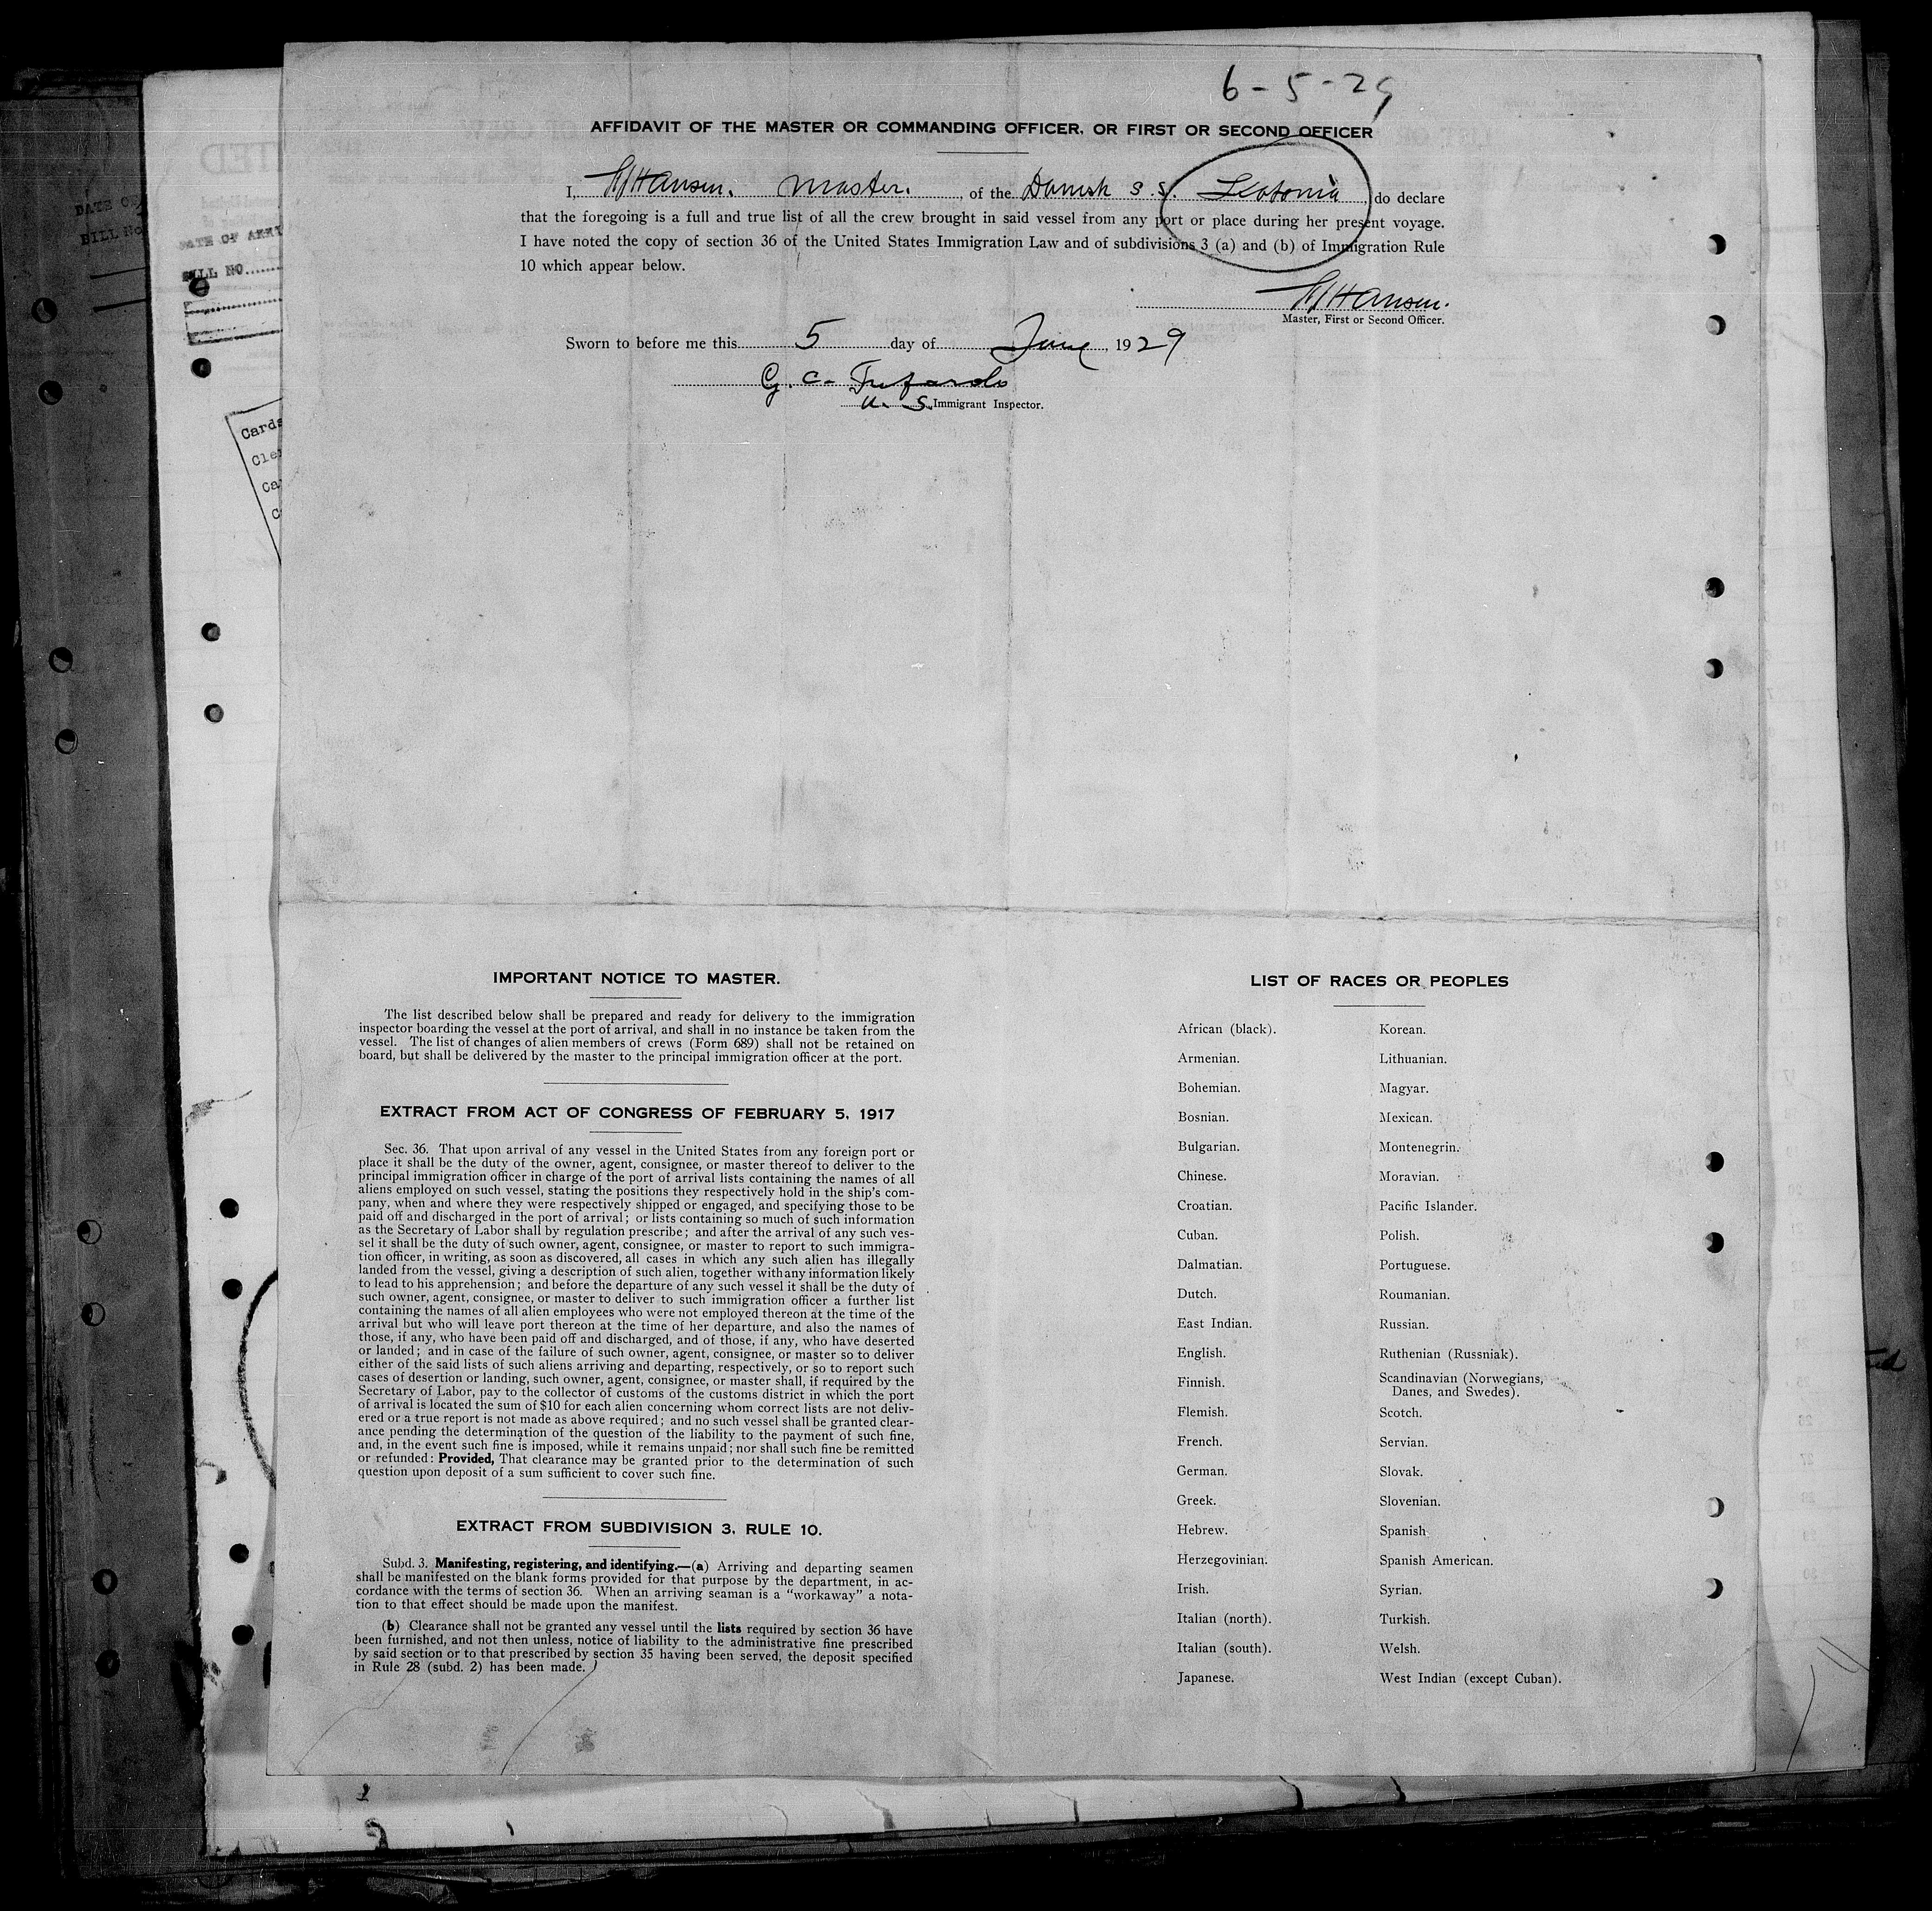 6-5-29
AFFIDAVIT OF THE MASTER OR COMMANDING OFFICER, OR FIRST OR SECOND OFFICER
I, Hansen. Master. of the Danish S.S. do declare
that the foregoing is a full and true list of all the crew brought in said vessel from any port or place during her present voyage.
I have noted the copy of section 36 of the United States Immigration Law and of subdivisions 3 (a) and (b) of Immigration Rule
10 which appear below.
Hansen.
Master, First or Second Officer.
Sworn to before me this 5 day of June, 1929
G. C.
U. S. Immigrant Inspector.
DATE OF
BILL No
DATE OF ARRI
BILL NO.
Cards
Cle
Ca
C
IMPORTANT NOTICE TO MASTER.
The list described below shall be prepared and ready for delivery to the immigration
inspector boarding the vessel at the port of arrival, and shall in no instance be taken from the
vessel. The list of changes of alien members of crews (Form 689) shall not be retained on
board, but shall be delivered by the master to the principal immigration officer at the port.
EXTRACT FROM ACT OF CONGRESS OF FEBRUARY 5, 1917
Sec. 36. That upon arrival of any vessel in the United States from any foreign port or
place it shall be the duty of the owner, agent, consignee, or master thereof to deliver to the
principal immigration officer in charge of the port of arrival lists containing the names of all
aliens employed on such vessel, stating the positions they respectively hold in the ship's com-
pany, when and where they were respectively shipped or engaged, and specifying those to be
paid off and discharged in the port of arrival; or lists containing so much of such information
as the Secretary of Labor shall by regulation prescribe; and after the arrival of any such ves-
sel it shall be the duty of such owner, agent, consignee, or master to report to such immigra-
tion officer, in writing, as soon as discovered, all cases in which any such alien has illegally
landed from the vessel, giving a description of such alien, together with any information likely
to lead to his apprehension; and before the departure of any such vessel it shall be the duty of
such owner, agent, consignee, or master to deliver to such immigration officer a further list
containing the names of all alien employees who were not employed thereon at the time of the
arrival but who will leave port thereon at the time of her departure, and also the names of
those, if any, who have been paid off and discharged, and of those, if any, who have deserted
or landed; and in case of the failure of such owner, agent, consignee, or master so to deliver
either of the said lists of such aliens arriving and departing, respectively, or so to report such
cases of desertion or landing, such owner, agent, consignee, or master shall, if required by the
Secretary of Labor, pay to the collector of customs of the customs district in which the port
of arrival is located the sum of $10 for each alien concerning whom correct lists are not deliv-
ered or a true report is not made as above required; and no such vessel shall be granted clear-
ance pending the determination of the question of the liability to the payment of such fine,
and, in the event such fine is imposed, while it remains unpaid; nor shall such fine be remitted
or refunded: Provided, That clearance may be granted prior to the determination of such
question upon deposit of a sum sufficient to cover such fine.
EXTRACT FROM SUBDIVISION 3, RULE 10.
Subd. 3. Manifesting, registering, and identifying.—(a) Arriving and departing seamen
shall be manifested on the blank forms provided for that purpose by the department, in ac-
cordance with the terms of section 36. When an arriving seaman is a "workaway" a nota-
tion to that effect should be made upon the manifest.
(b) Clearance shall not be granted any vessel until the lists required by section 36 have
been furnished, and not then unless, notice of liability to the administrative fine prescribed
by said section or to that prescribed by section 35 having been served, the deposit specified
in Rule 28 (subd. 2) has been made.
LIST OF RACES OR PEOPLES
African (black).
Armenian.
Bohemian.
Bosnian.
Bulgarian.
Chinese.
Croatian.
Cuban.
Dalmatian.
Dutch.
East Indian.
English.
Finnish.
Flemish.
French.
German.
Greek.
Hebrew.
Herzegovinian.
Irish.
Italian (north).
Italian (south).
Japanese.
Korean.
Lithuanian.
Magyar.
Mexican.
Montenegrin.
Moravian.
Pacific Islander.
Polish.
Portuguese.
Roumanian.
Russian.
Ruthenian (Russniak).
Scandinavian (Norwegians,
Danes, and Swedes).
Scotch.
Servian.
Slovak.
Slovenian.
Spanish
Spanish American.
Syrian.
Turkish.
Welsh.
West Indian (except Cuban).